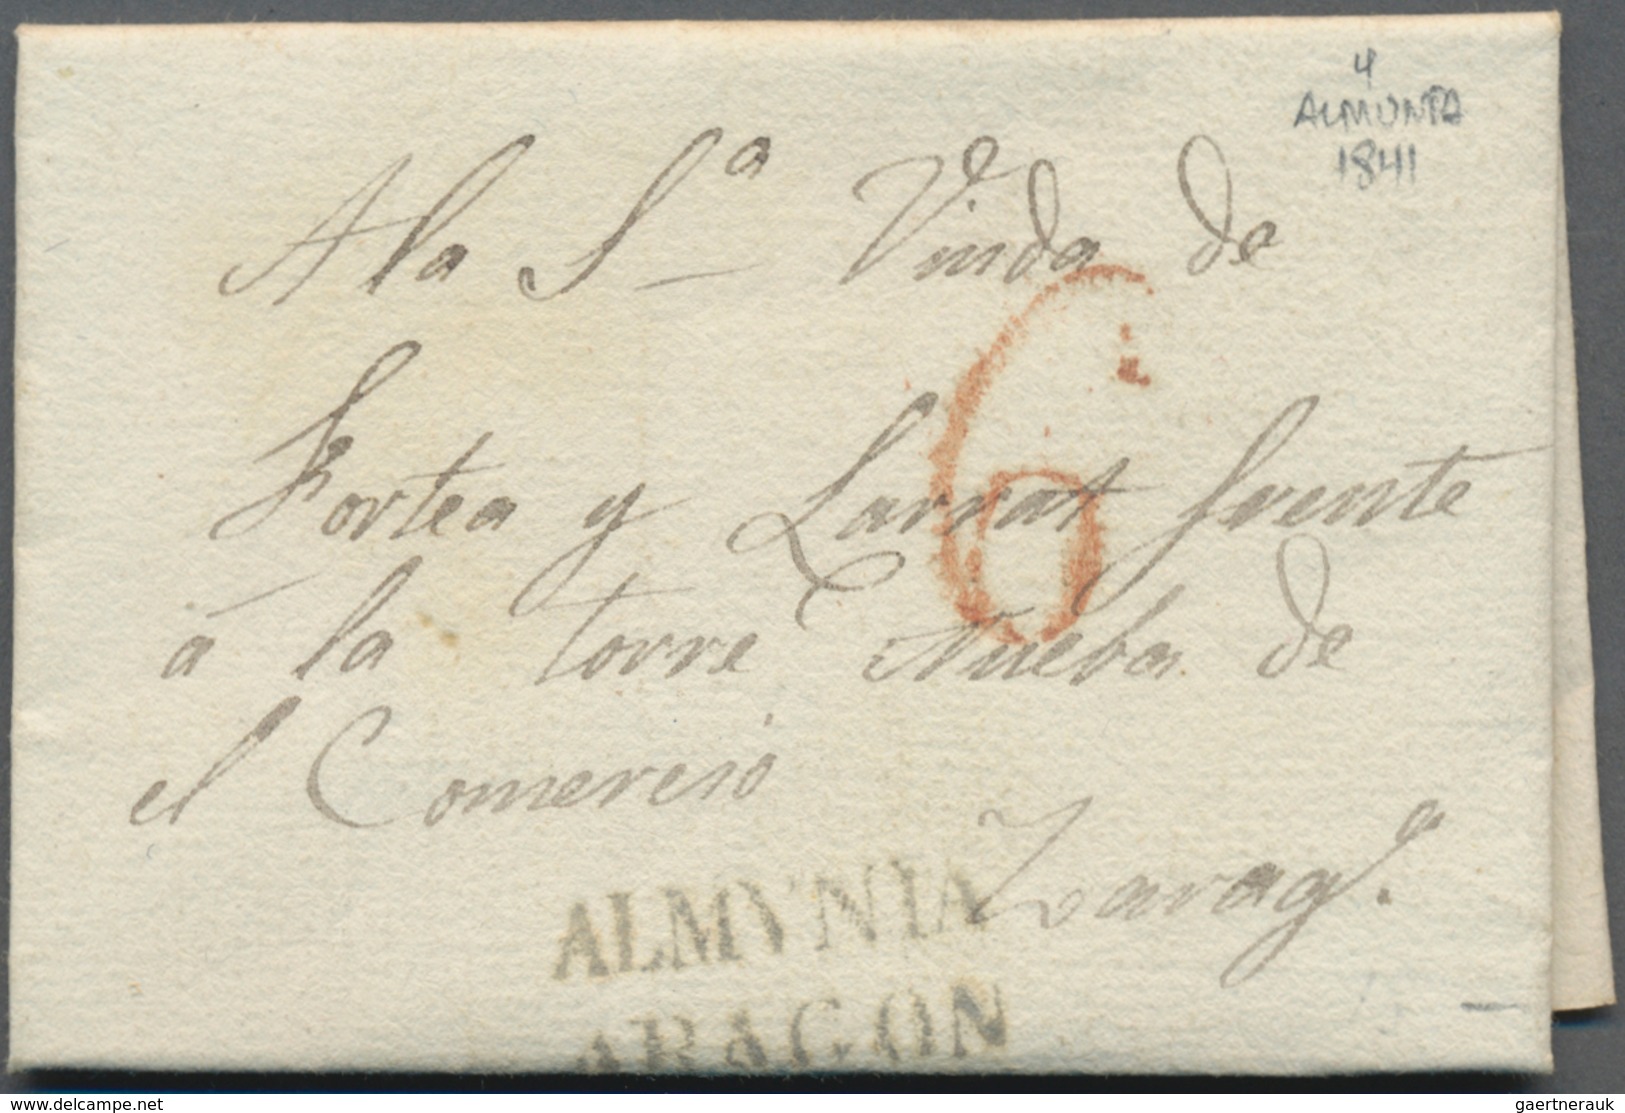 4
ALMUNIA
1841
A la S.ª Viuda de
Fortea y Larrat frente
á la torre Nueba de
el Comercio
Zarag.ª
6
ALMVNIA
ARAGON
delcampe.net
gaertnerauk